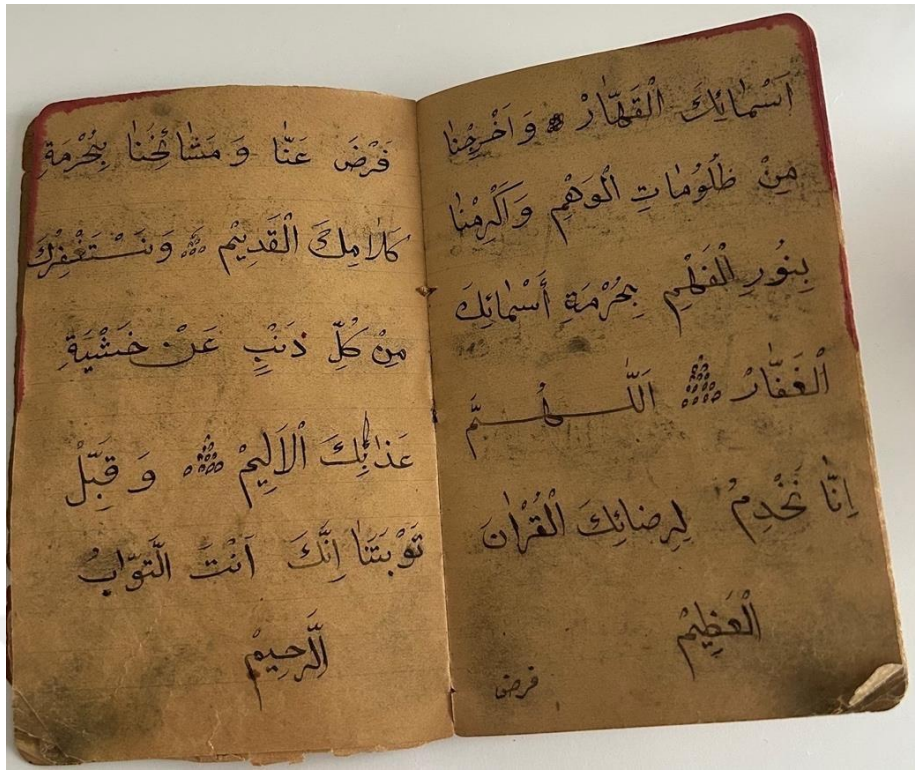 اَسْمٰائِكَ الْقَهّٰارْ وَ اَخْرِجْنٰا
مِنْ ظُلُومٰاتِ الْوَهْمِ وَاَكْرِمْنٰا
بِنُورِ الْفَهْمِ بِحُرْمَةِ أَسْمٰائِكَ
الْغَفّٰارْ اَللّٰهُمَّ
اِنّٰا نَخْدِمُ لِرِضٰائِكَ الْقُرْاٰنَ
الْعَظِيْمْ
فرض
فَرْضَ عَنّٰا وَ مَشٰائِخُنٰا بِحُرْمَةِ
كَلٰامِكَ الْقَدِيْمْ وَنَسْتَغْفِرُكَ
مِنْ كُلِّ ذَنْبٍ عَنْ خَشْيَةِ
عَذٰابِكَ الْاَلِيْمْ وَ قَبِّلْ
تَوْبَتَنٰا اِنَّكَ اَنْتَ الَّتوّٰابُ
الَّرحِيمْ